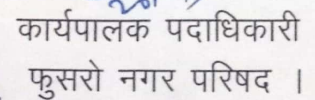 कार्यपालक पदाधिकारी
फुसरो नगर परिषद ।